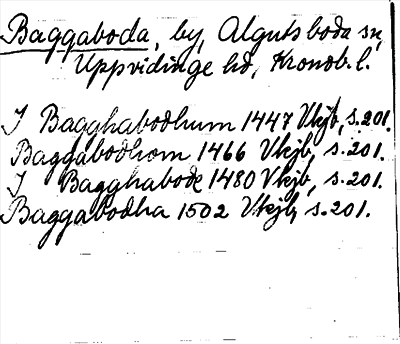 Baggaboda, by, Algutsboda sn,
Uppvidinge hd, Kronob. l.
I Bagghabodhum 1447 Vkjb, s. 201.
Baggabodhom 1466 Vkjb, s. 201.
I Bagghabode 1480 Vkjb, s. 201.
Baggabodha 1502 Vkjb, s. 201.